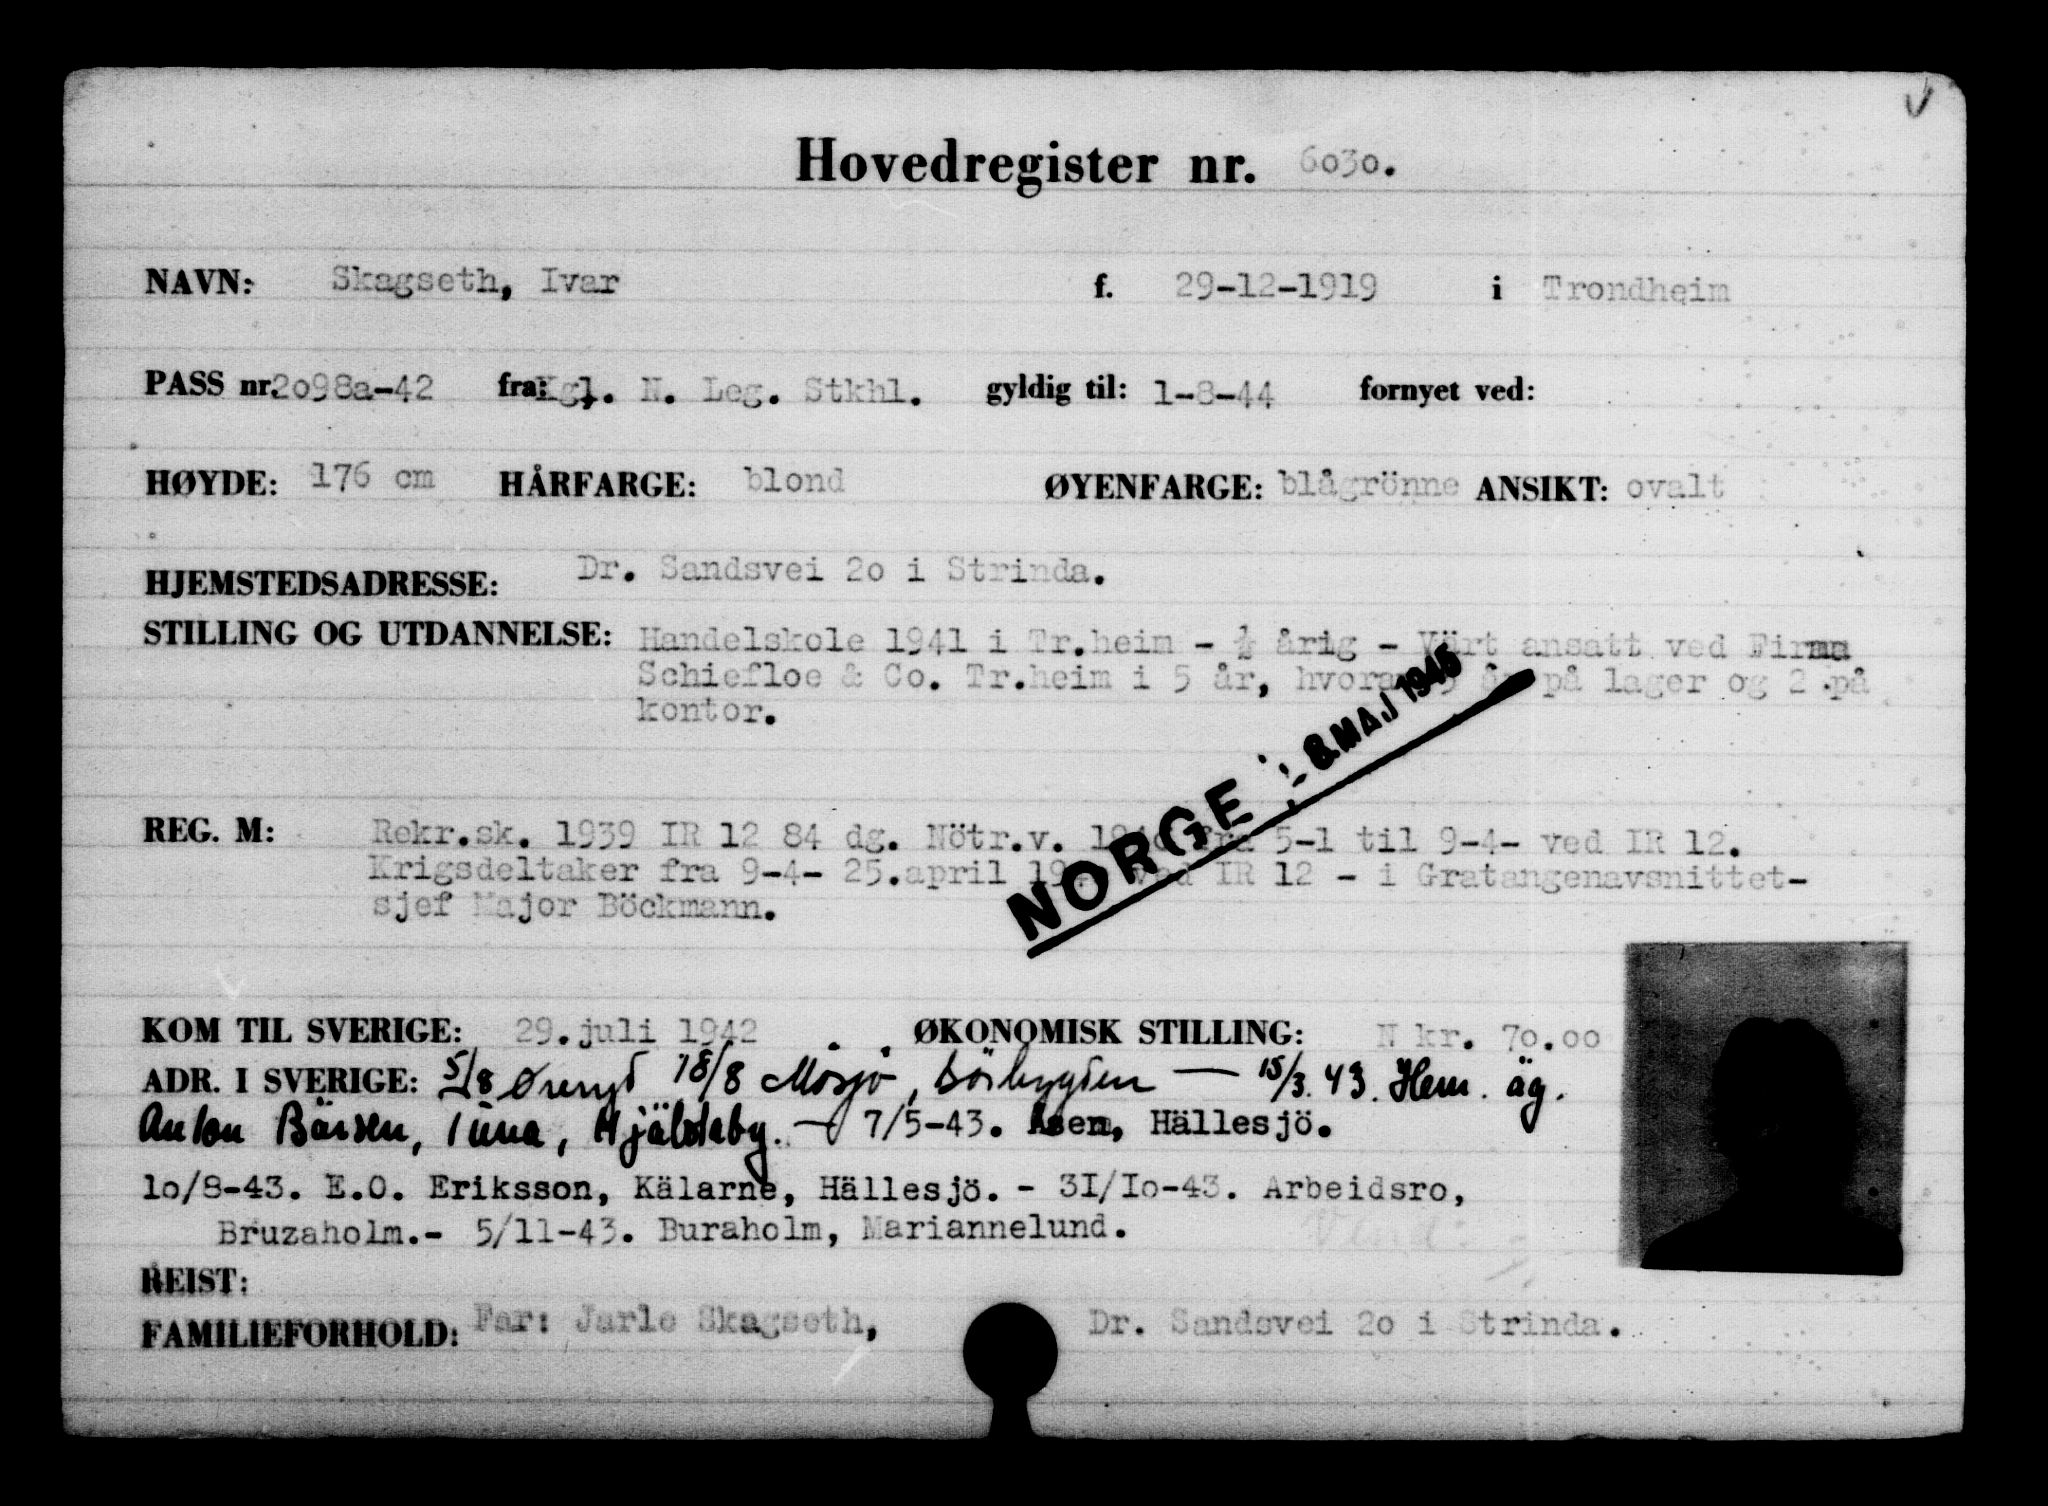 Hovedregister nr. 6030.
NAVN: Skagseth, Ivar f. 29-12-1919 i Trondheim
PASS nr. 2098a-42 fra: Kgl. N. Leg. Stkhl. gyldig til: 1-8-44 fornyet ved:
HØYDE: 176 cm HÅRFARGE: blond ØYENFARGE: blågrönne ANSIKT: ovalt
HJEMSTEDSADRESSE: Dr. Sandsvei 2o i Strinda.
STILLING OG UTDANNELSE: Handelskole 1941 i Tr.heim - ½ årig - Värt ansatt ved Firma
Schiefloe & Co. Tr.heim i 5 år, hvorav 3 år på lager og 2 på
kontor.
NORGE - 8. MAJ 1945
REG. M: Rekr.sk. 1939 IR 12 84 dg. Nötr.v. 194o fra 5-1 til 9-4- ved IR 12.
Krigsdeltaker fra 9-4- 25.april 19 ved IR 12 - i Gratangenavsnittet-
sjef Major Böckmann.
KOM TIL SVERIGE: 29.juli 1942 ØKONOMISK STILLING: N kr. 7o.oo
ADR. I SVERIGE: 5/8 Øreryd 18/8 Mosjö, Sörbygden — 15/3.43. Hem. äg.
Anton Tuna, — 7/5-43. Åsen, Hällesjö.
1o/8-43. E.O. Eriksson, Kälarne, Hällesjö. - 3I/Io-43. Arbeidsro,
Bruzaholm.- 5/11-43. Buraholm, Mariannelund.
Vend:
REIST:
FAMILIEFORHOLD: Far: Jarle Skagseth, Dr. Sandsvei 2o i Strinda.